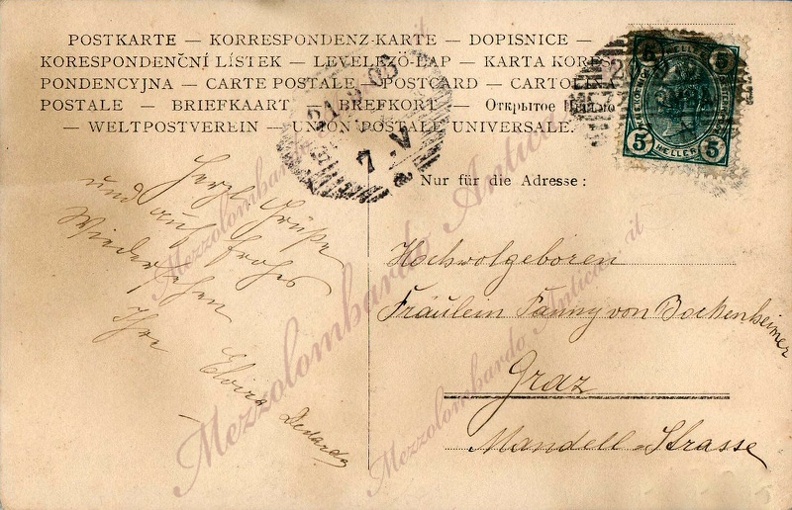 POSTKARTE — KORRESPONDENZ-KARTE — DOPISNICE —
KORESPONDENČNÍ LÍSTEK — LEVELEZŐ-LAP — KARTA KORES-
PONDENCYJNA — CARTE POSTALE — POSTCARD — CARTOLINA
POSTALE — BRIEFKAART — BREFKORT — Открытое Письмо
— WELTPOSTVEREIN — UNION POSTALE UNIVERSALE.
7 - V
5 HELLER 5
5 HELLER 5
Nur für die Adresse:
Herzl. Grüße
und auf frohes
Wiedersehen
Ihre Elvira
Hochwolgeboren
Fräulein Fanny von Bockenheimer
Graz
Mandell-Strasse
Mezzolombardo Antica .it
Mezzolombardo Antica .it
Mezzolombardo Antica .it